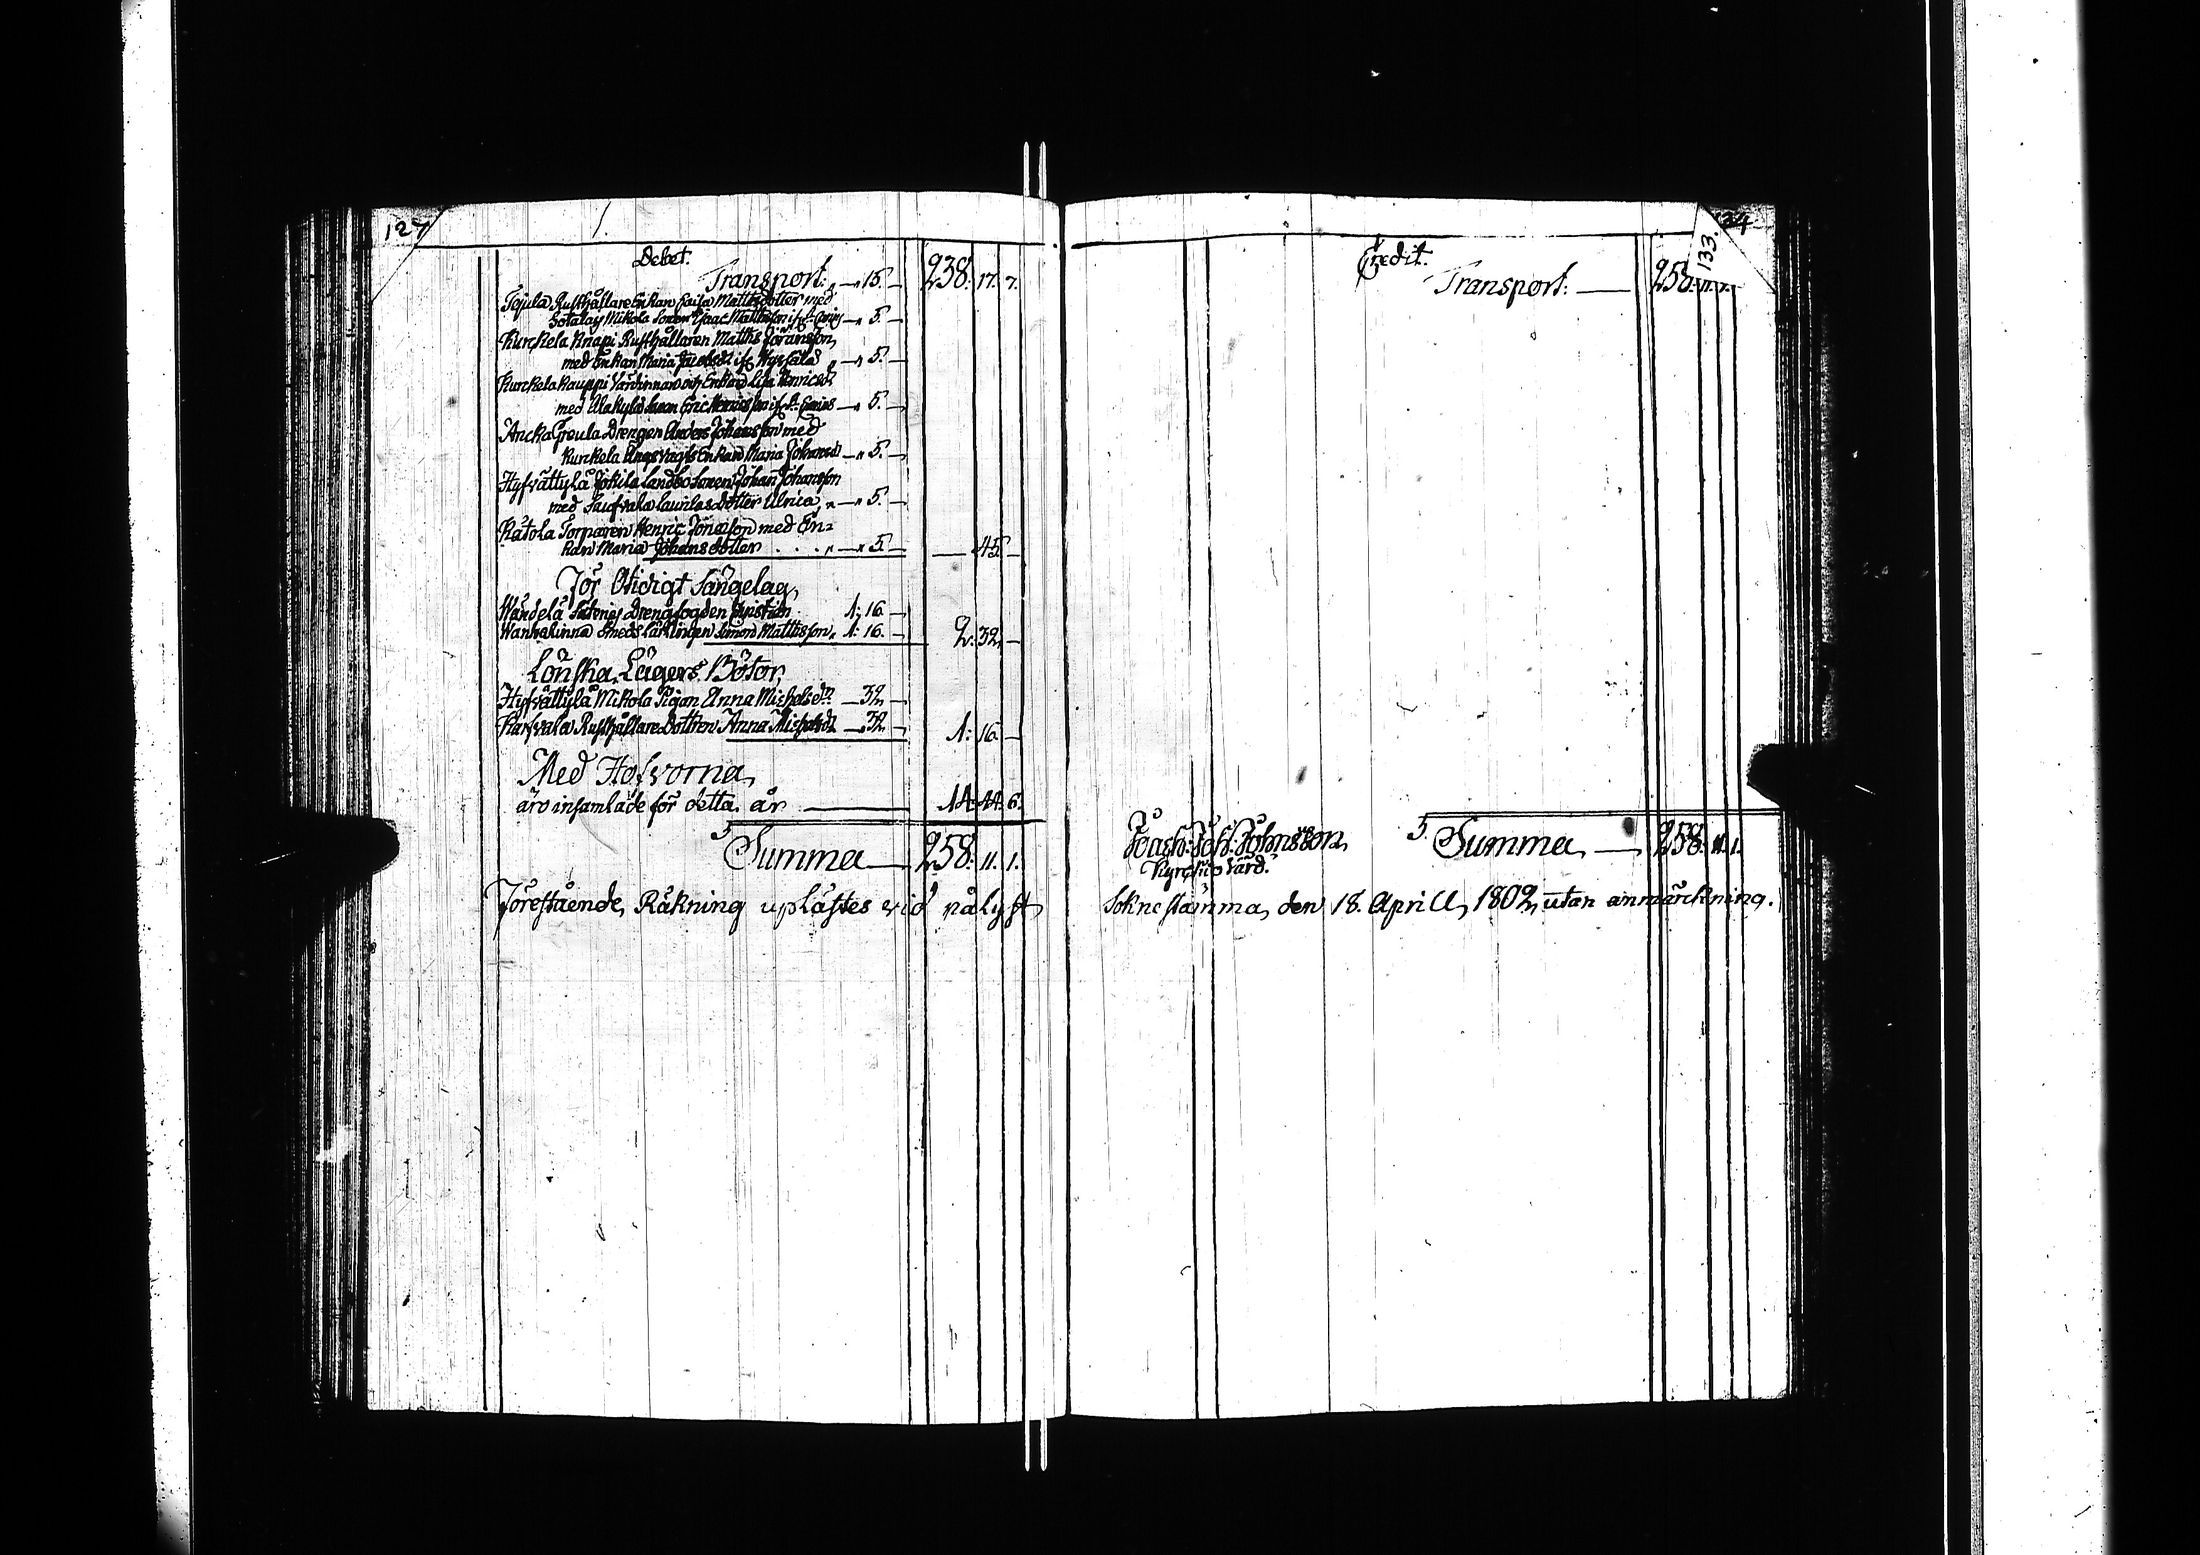 127
Debet.
Transport. „ — 15. — 238. 17. 7.
Tojula Rusthållare Enkan Caisa Matthsdotter med
Sotalay Mikola Sonen Isaac Mattsson if. St. — 5. —
Kurckela Knapi Rusthållaren Matths Jöransson,
med Enkan Maria — 5. —
Kurckela Kauppi Enkan Lisa Henricsdr
med Alakylä Sonen Eric Henricsson if. St. — 5. —
Ancka Greula Drengen Anders Johansson med
Kurckela Enkan Maria Johansdr — 5. —
Hyfvättylä Jokila Landbo Sonen Johan Johansson
med Launlas dotter Ulrica „ — 5. —
Kätola Torparen Henric Jonasson med En=
kan Maria Johansdotter . . . „ — 5. — — 45. —
För Otidigt Sängelag,
Wändelä Säteries Drengfogden Christian 1: 16. —
Wanhalinna Smeds Lärlingen Simon Mattsson, 1: 16. — 2: 32. —
Lönska Lägers Böter,
Hyfvättylä Mikola Pigan Anna Michelsdr — 32. —
Karfvala Rusthållare Dottren Anna Michelsdr — 32. — 1: 16. —
Med Håfvorna,
äro insamlade för detta år — 14: 44. 6.
Summa — 258. 11. 1.
Förestående Räkning uplästes vid pålyst
133.
Credit.
Transport. — 258. 11. 1.
Joh: Johnsson,
Kyrckio Värd.
Summa, — 258. 11. 1.
Sokne stämma, den 18. Aprill, 1802, utan anmärckning.